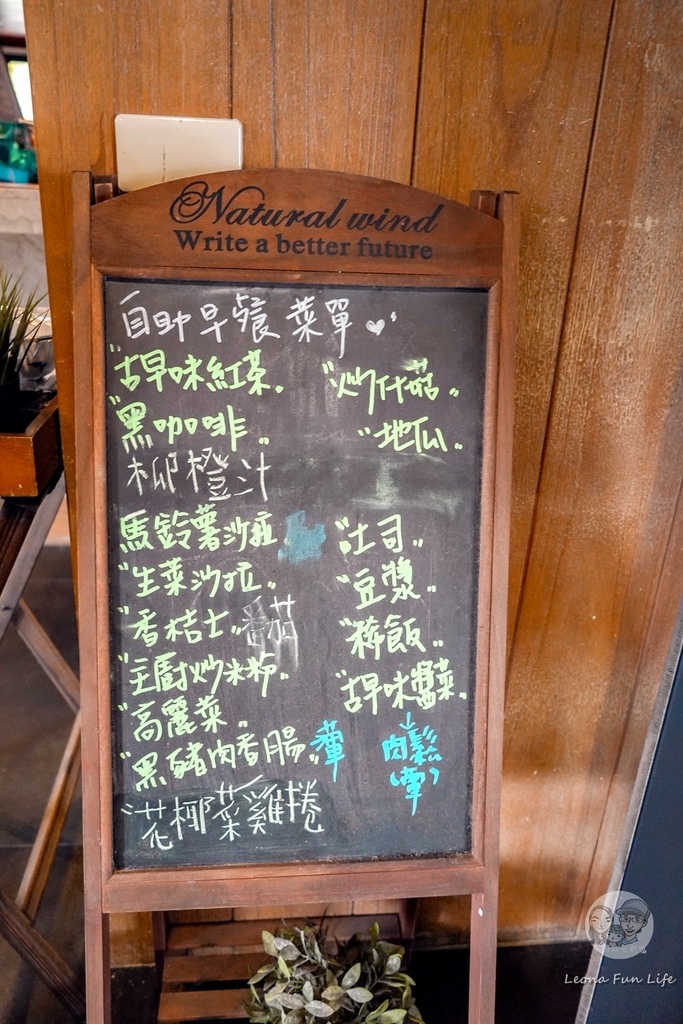 Natural wind
Write a better future
自助早餐 菜單
古早味紅茶
黑咖啡
柳橙汁
馬鈴薯沙拉
生菜沙拉
香桔士 番茄
主廚炒米粉
高麗菜
黑豬肉香腸 葷
花椰菜雞捲
炒什菇
地瓜
吐司
豆漿
稀飯
古早味醬菜
肉鬆
(葷)
Leona Fun Life